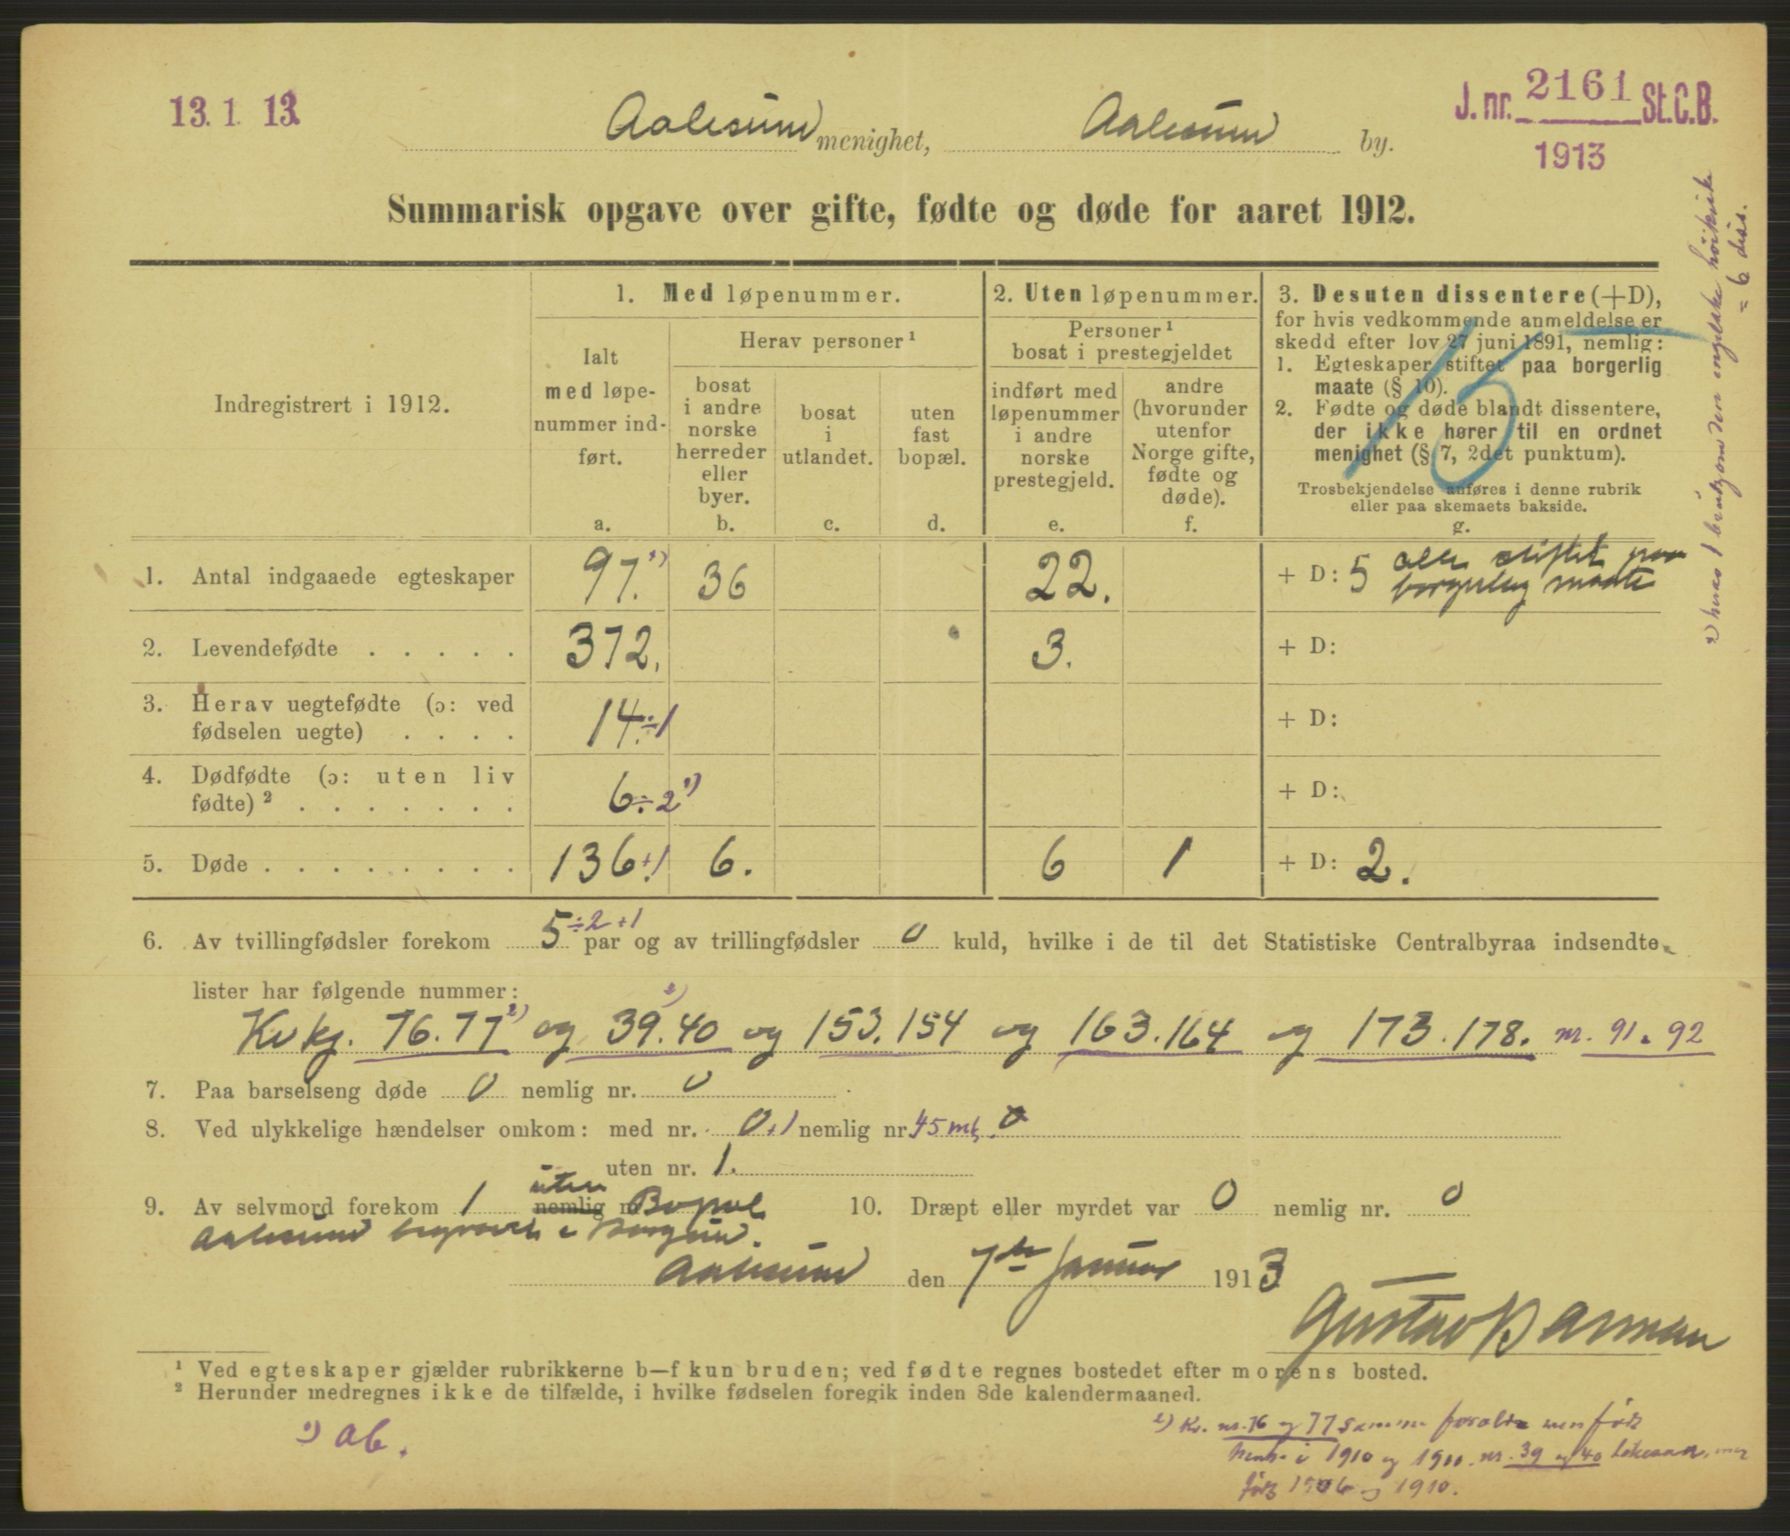 13. 1. 13.
Aalesund menighet, Aalesund by.
J. nr. 2161 St.C.B.
1913
Summarisk opgave over gifte, fødte og døde for aaret 1912.
Indregistrert i 1912.
1. Med løpenummer.
Ialt med løpenummer indført.
a.
Herav personer ¹
bosat i andre norske herreder eller byer.
b.
bosat i utlandet.
c.
uten fast bopæl.
d.
2. Uten løpenummer.
Personer ¹ bosat i prestegjeldet
indført med løpenummer i andre norske prestegjeld.
e.
andre (hvorunder utenfor Norge gifte, fødte og døde).
f.
3. Desuten dissentere (+D),
for hvis vedkommende anmeldelse er
skedd efter lov 27 juni 1891, nemlig:
1. Egteskaper stiftet paa borgerlig
maate (§ 10).
2. Fødte og døde blandt dissentere,
der ikke hører til en ordnet
menighet (§ 7, 2det punktum).
Trosbekjendelse anføres i denne rubrik
eller paa skemaets bakside.
g.
15
1. Antal indgaaede egteskaper 97. ²) 36 22. + D: 5 alle stiftet paa
borgerlig maate
2. Levendefødte . . . . . 372. 3. + D:
3. Herav uegtefødte (ɔ: ved
fødselen uegte) . . . . 14. ÷1 + D:
4. Dødfødte (ɔ: uten liv
fødte) ² . . . . . . . 6 ÷2 ¹) + D:
5. Døde . . . . . . . . 136 +1 6. 6 1 + D: 2.
6. Av tvillingfødsler forekom 5 ÷2 +1 par og av trillingfødsler 0 kuld, hvilke i de til det Statistiske Centralbyraa indsendte
lister har følgende nummer:
Kvkj. 76.77 ²) og 39.40 ²) og 153.154 og 163.164 og 173.178. nr. 91. 92
7. Paa barselseng døde 0 nemlig nr. 0
8. Ved ulykkelige hændelser omkom: med nr. 0 +1 nemlig nr. 45 mk. 0
uten nr. 1.
9. Av selvmord forekom 1 uten nemlig n Bopæl
Aalesund begravet i Borgund.
10. Dræpt eller myrdet var 0 nemlig nr. 0
Aalesund den 7de Januar 1913
Gustav Barman
¹ Ved egteskaper gjælder rubrikkerne b—f kun bruden; ved fødte regnes bostedet efter morens bosted.
² Herunder medregnes ikke de tilfælde, i hvilke fødselen foregik inden 8de kalendermaaned.
¹) ab.
²) Kv. nr. 76 og 77 samme forældre men født
i 1910 og 1911. nr. 39 og 40
født 1906 og 1910.
²) herav 1 brudgom den engelske høikirke
= 6 diss.